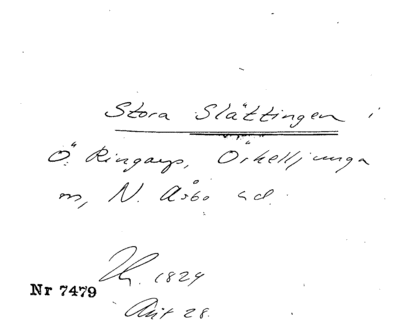 Stora Slättingen i
Ö. Ringarp, Örkelljunga
sn, N. Åsbo hd.
1824
Nr 7479
Akt 28.